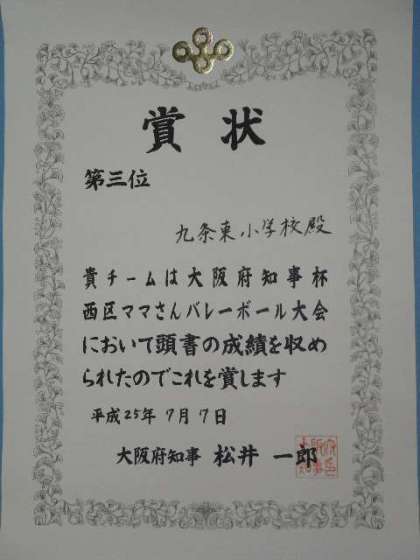 賞状
第三位
九条東小学校殿
貴チームは大阪府知事杯
西区ママさんバレーボール大会
において頭書の成績を収め
られたのでこれを賞します
平成25年7月7日
大阪府知事 松井一郎